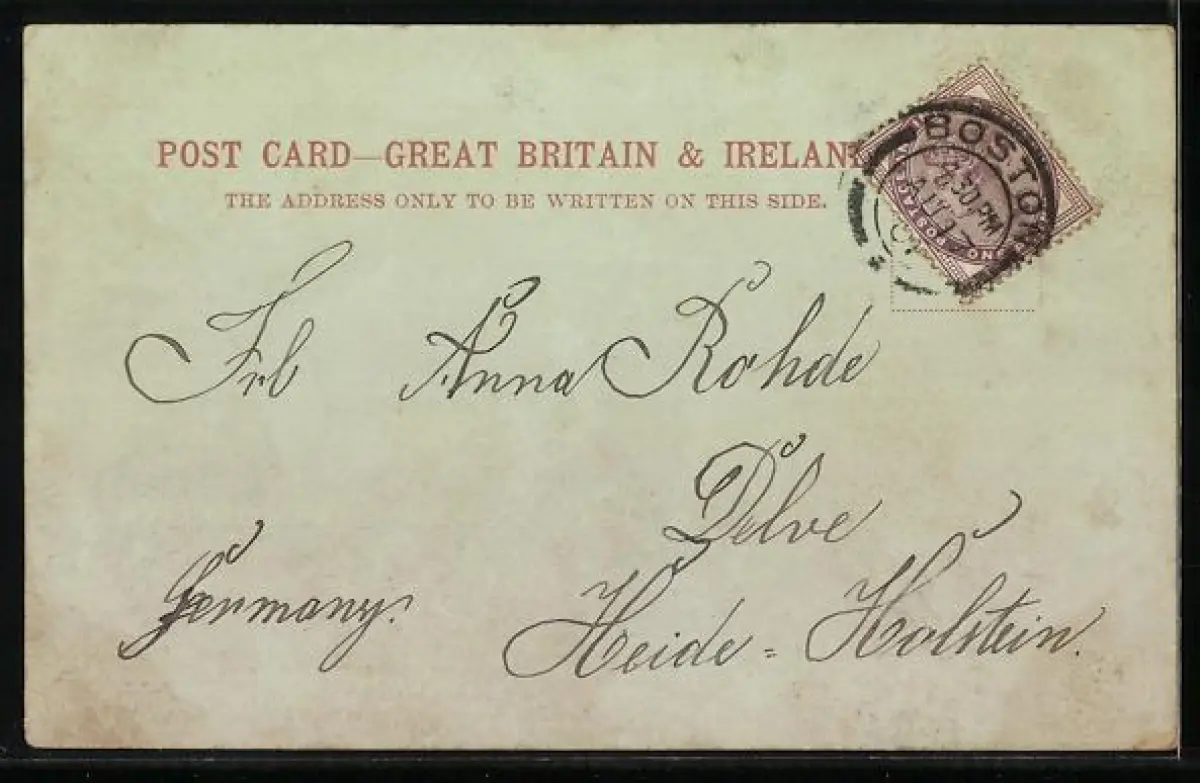 POST CARD—GREAT BRITAIN & IRELAN
THE ADDRESS ONLY TO BE WRITTEN ON THIS SIDE.
BOSTON
4.30 PM
POSTAG
ONE
Frl Anna Rohde
Delve
Heide = Holstein.
Germany.